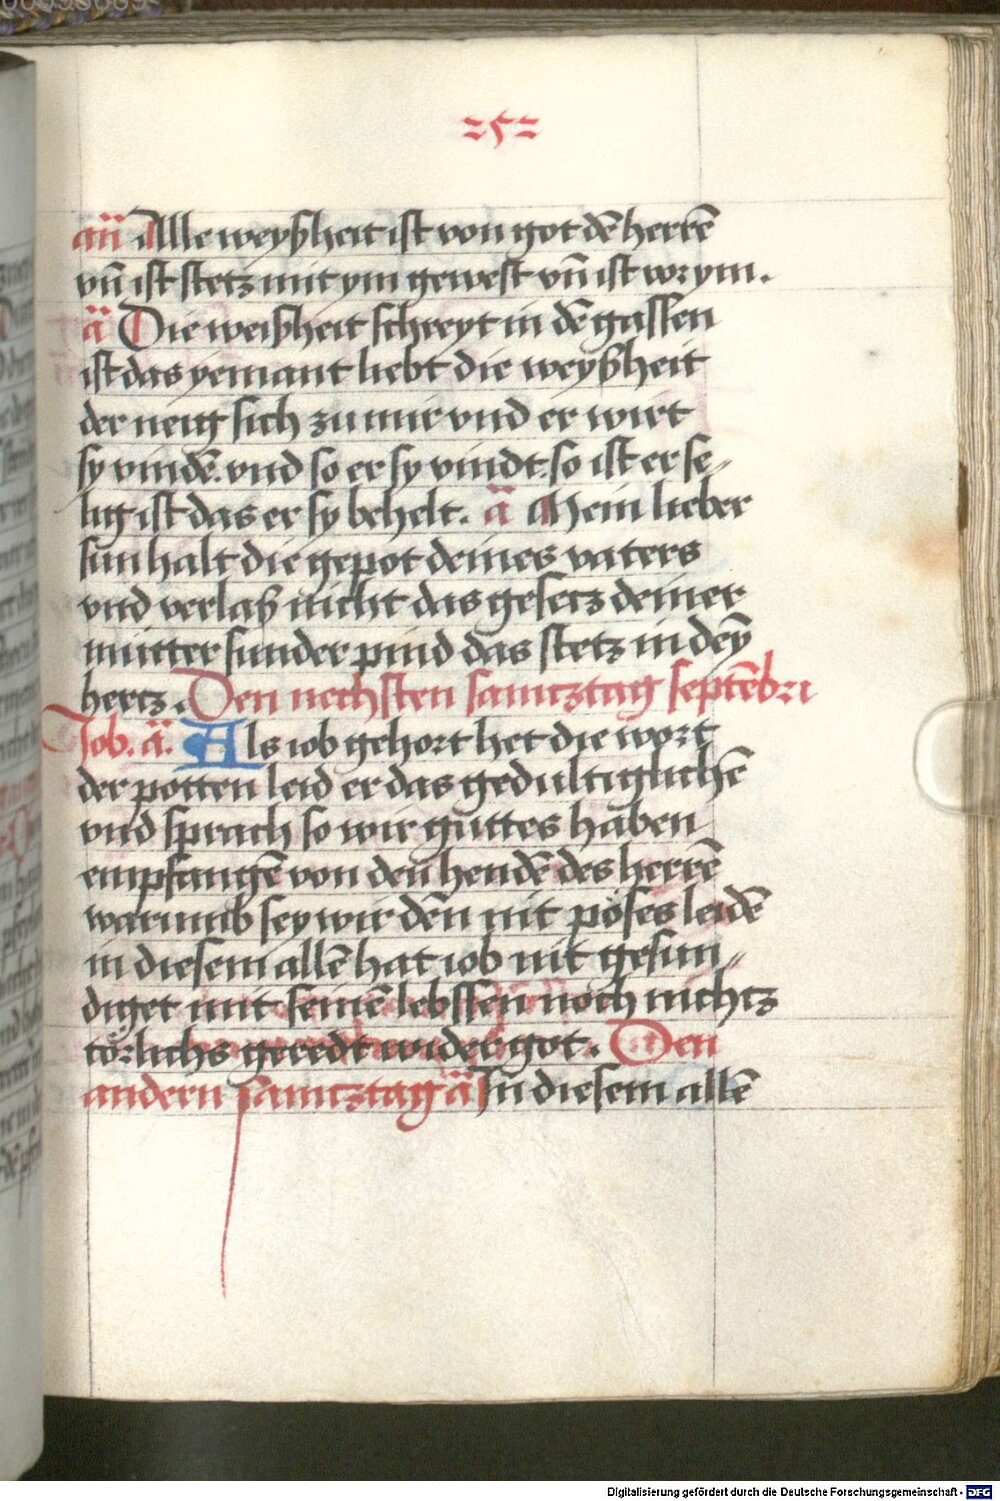 252
an̄ Alle weyßheit ist von got dē herrē
vn̄ ist stetz mit ym gewest vn̄ ist vor ym.
ā Die weißheit schreyt in dē gassen
ist das yemant liebt die weyßheit
der neig sich zu mir vnd er wirt
sy vindē. vnd so er sy vindt. so ist er se⸗
lig ist das er sy behelt. ā Mein lieber
sun halt die gepot deines vaters
vnd verlaß nicht das gesetz deiner
mütter sunder pind das stetz in deȳ
hertz. Den nechsten samtztag septēbri
Job. ā. Als iob gehort het die wort
der potten leid er das gedultiglichē
vnd sprach so wir güttes haben
empfangē von den hendē des herrē
warumb sey wir dēn nit pöses leidē
in diesem allē hat iob nit gesun⸗
diget mit seinē lebssen noch nichtz
törlichs geredt wider got. Den
andern samtztag ā In diesem allē
Digitalisierung gefördert durch die Deutsche Forschungsgemeinschaft - DFG